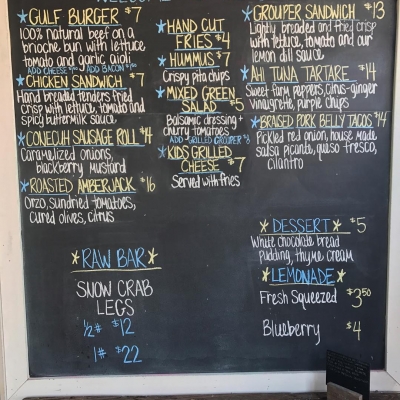 WELCOME
*GULF BURGER $7
100% natural beef on a
brioche bun with lettuce
tomato and garlic aioli
ADD CHEESE ADD BACON
*CHICKEN SANDWICH $7
Hand breaded tenders fried
crisp with lettuce, tomato and
spicy buttermilk sauce
*CONECUH SAUSAGE ROLL $14
Caramelized onions,
blackberry mustard
*ROASTED AMBERJACK $16
Orzo, sundried tomatoes,
cured olives, citrus
*RAW BAR*
SNOW CRAB
LEGS
1/2# $12
1# $22
*HAND CUT
FRIES $4
*HUMMUS $7
Crispy pita chips
*MIXED GREEN
SALAD $5
Balsamic dressing +
cherry tomatoes
ADD GRILLED GROUPER $8
*KIDS GRILLED
CHEESE $7
Served with fries
*GROUPER SANDWICH $13
Lightly breaded and fried crisp
with lettuce, tomato and our
lemon dill sauce
*AHI TUNA TARTARE $14
Sweet farm peppers, citrus-ginger
vinaigrette, purple chips
*BRAISED PORK BELLY TACOS $14
Pickled red onion, house made
salsa picante, queso fresco,
cilantro
*DESSERT* $5
White chocolate bread
pudding, thyme cream
*LEMONADE*
Fresh Squeezed $3.50
Blueberry $4